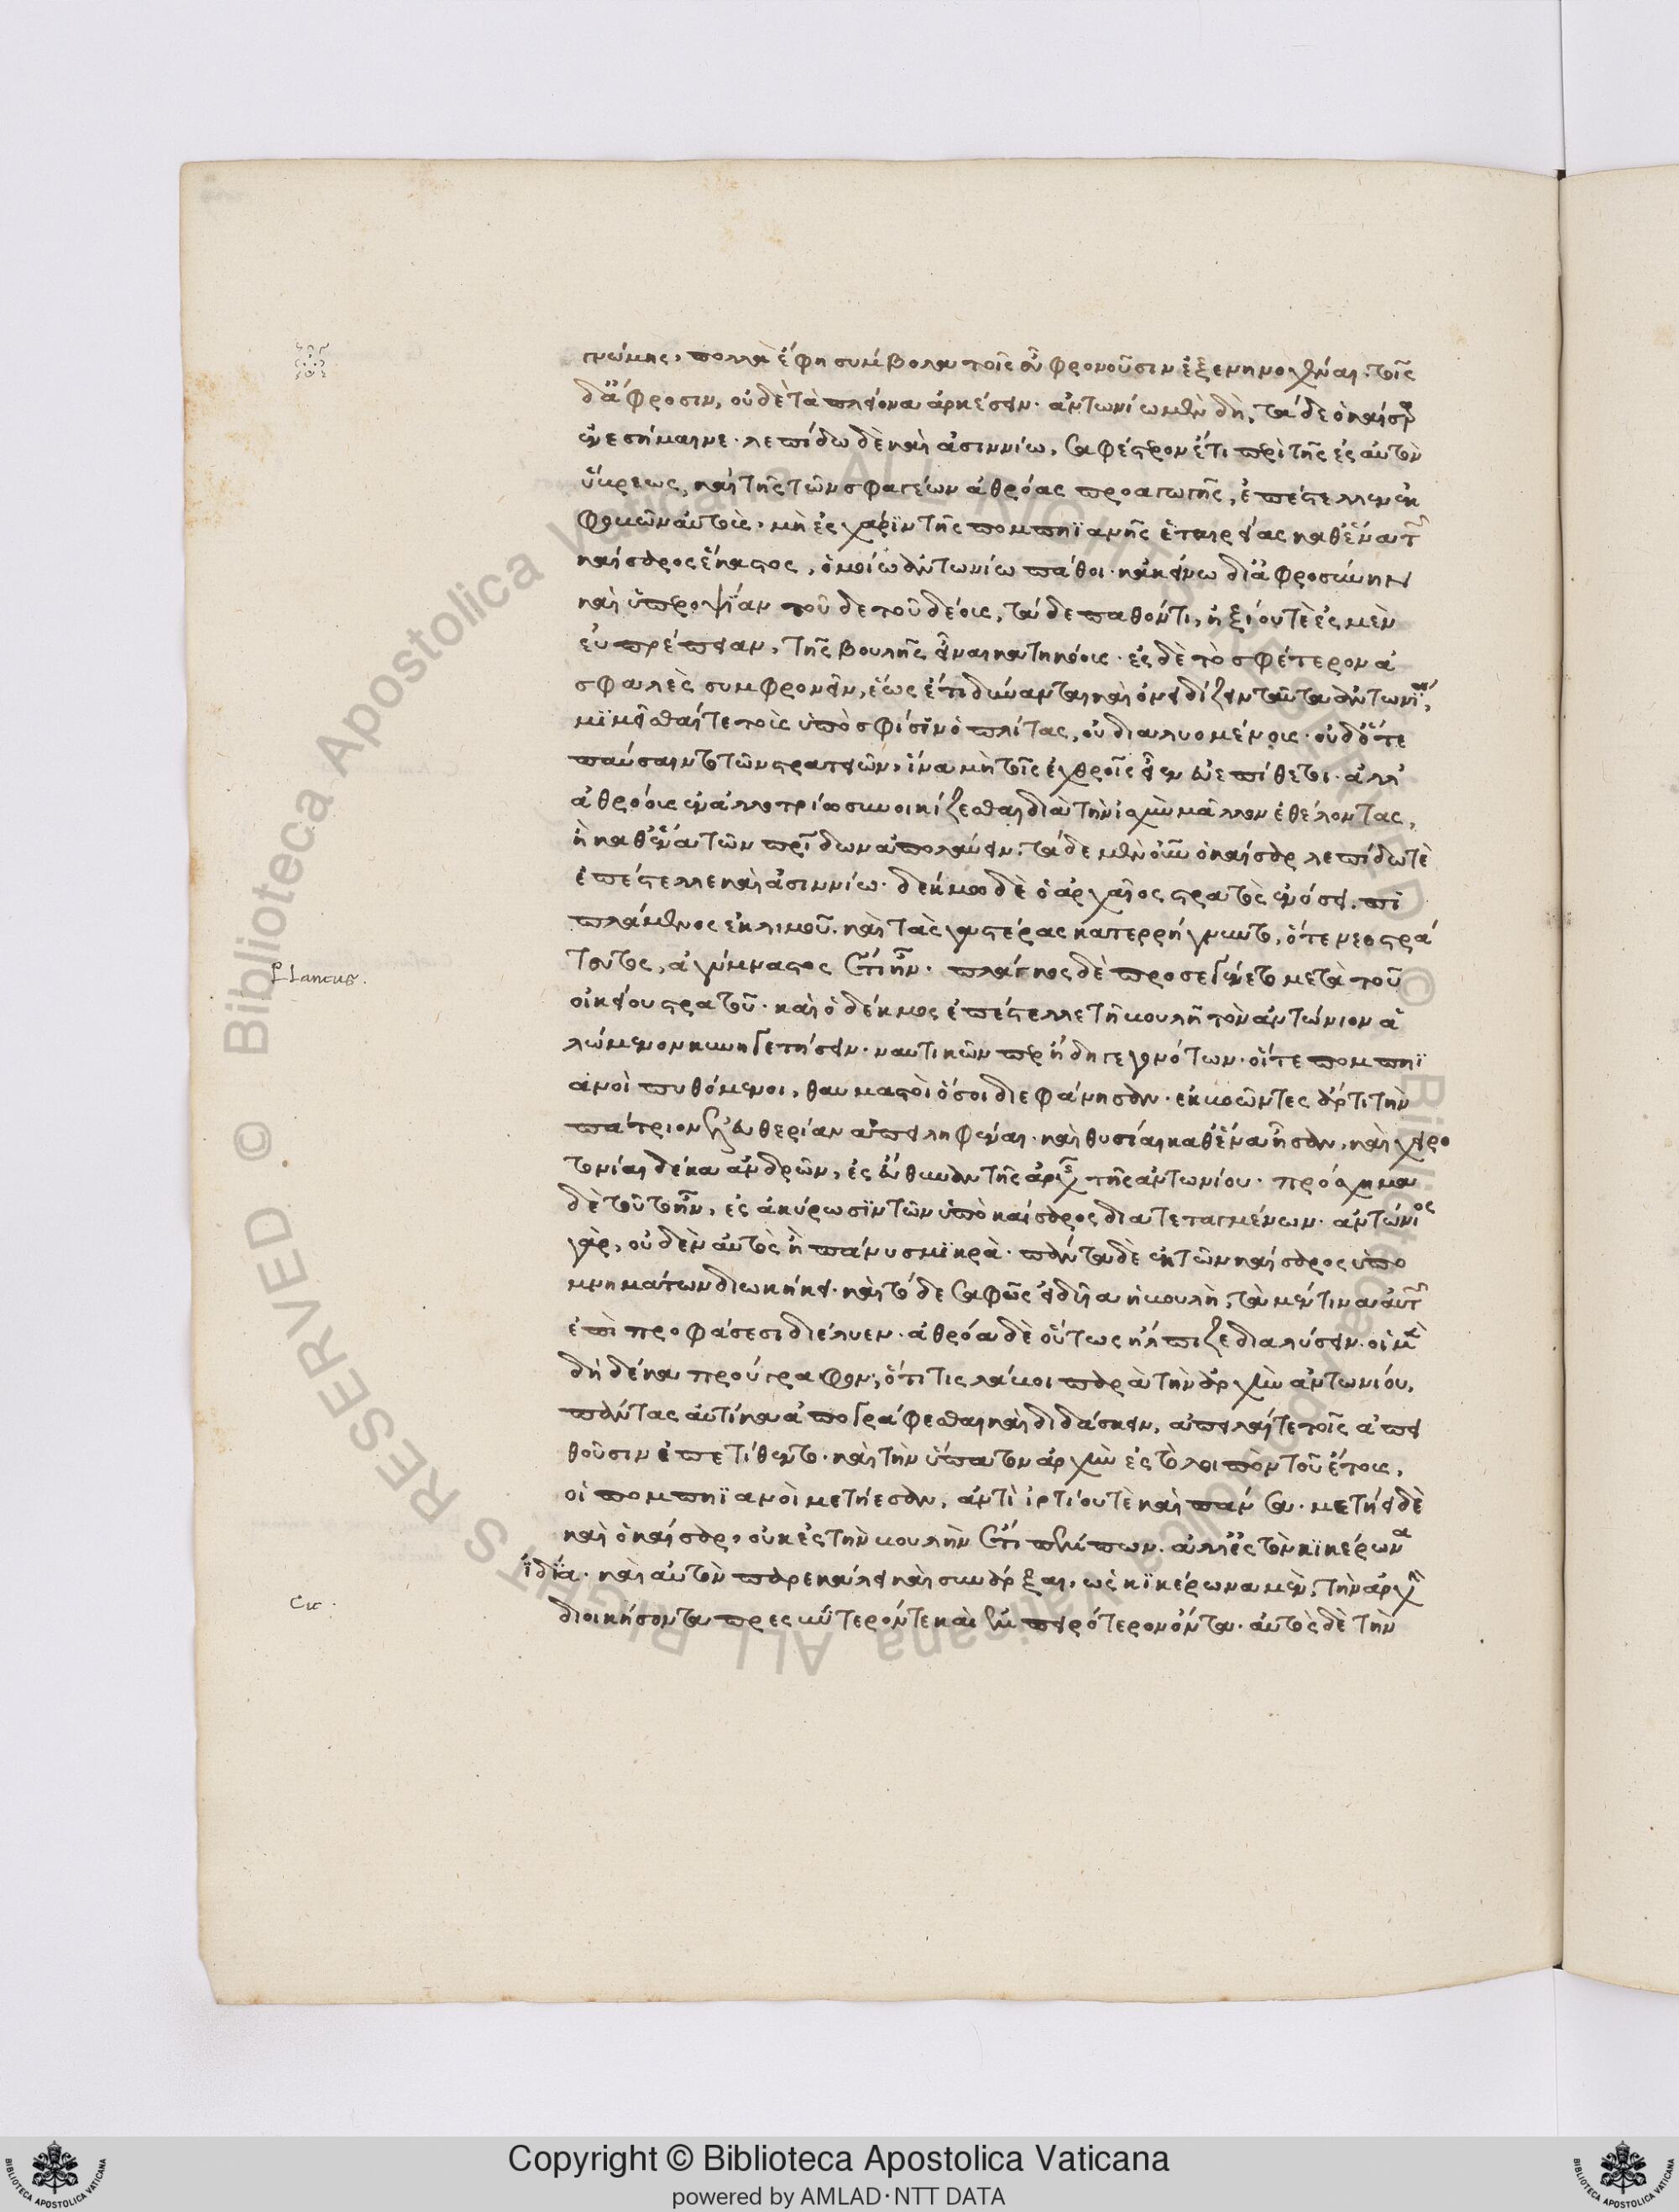 γνώμης, πολλὰ ἔφη σύμβολα τοῖς εὖ φρονοῦσιν ἐξενηνοχέναι. τοῖς
δ' ἄφροσιν, οὐδὲ τὰ πλείονα ἀρκέσειν. ἀντωνίω μὲν δὴ, τάδε ὁ καίσαρ
ἐνεσήμαινε. λεπίδω δὲ καὶ ἀσιννίω, σαφέστερον ἔτι περὶ τῆς ἐς αὐτὸν
ὕβρεως, καὶ τῆς τῶν σφαγέων ἀθρόας προαγωγῆς, ἐπέστελλεν ἐκ
φοβῶν αὐτοὺς, μὴ ἐς χάριν τῆς πομπηϊανῆς ἑταιρείας καθ' ἕνα τῶν
καίσαρος ἕκαστος, ὅμοια ἀντωνίω πάθοι. κἀκείνω δι' ἀφροσύνην
καὶ ὑπεροψίαν τοῦδε τοῦ δέους, τάδε παθόντι, ἠξίου τὲ ἐς μὲν
εὐπρέπειαν, τῆς βουλῆς εἶναι κατηκόους. ἐς δὲ τὸ σφέτερον ἀ
σφαλὲς συμφρονεῖν, ἕως ἔτι δύνανται καὶ ὀνειδίζειν ταῦτα ἀντωνίω,
μιμεῖσθαί τε τοὺς ὑπὸ σφίσιν ὁπλίτας, οὐ διαλυομένους. οὐδ' ὅτε
παύσαιντο τῶν στρατειῶν, ἵνα μὴ τοῖς ἐχθροῖς εἶεν εὐεπίθετοι. ἀλλ'
ἀθρόους ἐν ἀλλοτρίω συνοικίζεσθαι διὰ τὴν ἰσχὺν μᾶλλον ἐθέλοντας,
ἢ καθ' ἕνα τῶν πατρίδων ἀπολαύειν. τάδε μὲν οὖν ὁ καίσαρ λεπίδω τὲ
ἐπέστελλε καὶ ἀσιννίω. δέκμω δὲ ὁ ἀρχαῖος στρατὸς ἐνόσει. πι
πλάμενος ἐκ λιμοῦ. καὶ τὰς γαστέρας κατερρήγνυντο, ὅτε νεοστρά
τευτος, ἀγύμναστος ἔτι ἦν. πλάγκος δὲ προσεγένετο μετὰ τοῦ
οἰκείου στρατοῦ. καὶ ὁ δέκμος ἐπέστελλε τῆ βουλῆ τὸν ἀντώνιον ἀ
λώμενον κυνηγετήσειν. ναυτικῶν περ ἤδη γεγονότων. οἵτε πομπηϊ
ανοὶ πυθόμενοι, θαυμαστοὶ ὅσοι διεφάνησαν. ἐκβοῶντες ἄρτι τὴν
πάτριον ἐλευθερίαν ἀπειληφέναι. καὶ θυσίαι καθ' ἕνα ἦσαν, καὶ χειρο
τονίαι δέκα ἀνδρῶν, ἐς εὔθυναν τῆς ἀρχῆς τῆς ἀντωνίου. πρόσχημα
δὲ τοῦτ' ἦν, ἐς ἀκύρωσιν τῶν ὑπὸ καίσαρος διατεταγμένων. ἀντώνιος
γὰρ, οὐδὲν αὐτὸς ἢ πάνυ σμικρὰ. πάντα δὲ ἐκ τῶν καίσαρος ὑπο
μνημάτων διωκήκει. καὶ τόδε σαφῶς εἰδυῖα ἡ βουλὴ, τὰ μέν τινα αὐτῶν
ἐπὶ προφάσεσι διέλυεν. ἀθρόα δὲ οὕτως ἤλπιζε διαλύσειν. οἱ μὲν
δὴ δέκα προύγραφον, ὅτι τις λάβοι παρὰ τὴν ἀρχὴν ἀντωνίου,
πάντας αὐτίκα ἀπογράφεσθαι καὶ διδάσκειν, ἀπειλαί τε τοῖς ἀπει
θοῦσιν ἐπετίθεντο. καὶ τὴν ὕπατον ἀρχὴν ἐς τὸ λοιπὸν τοῦ ἔτους,
οἱ πομπηϊανοὶ μετήεσαν, ἀντὶ ἱρτίου τὲ καὶ πάνσα. μετήει δὲ
καὶ ὁ καίσαρ, οὐκ ἐς τὴν βουλὴν ἔτι πέμπων. ἀλλ' ἐς τὸν κικέρωνα
ἰδία. καὶ αὐτὸν παρεκάλει καὶ συνάρξαι, ὡς κικέρωνα μὲν, τὴν ἀρχὴν
διοικήσοντα πρεσβύτερόν τε καὶ ἐμπειρότερον ὄντα. αὐτὸς δὲ τὴν
PLancus.
Cic.
Copyright © Biblioteca Apostolica Vaticana
powered by AMLAD·NTT DATA